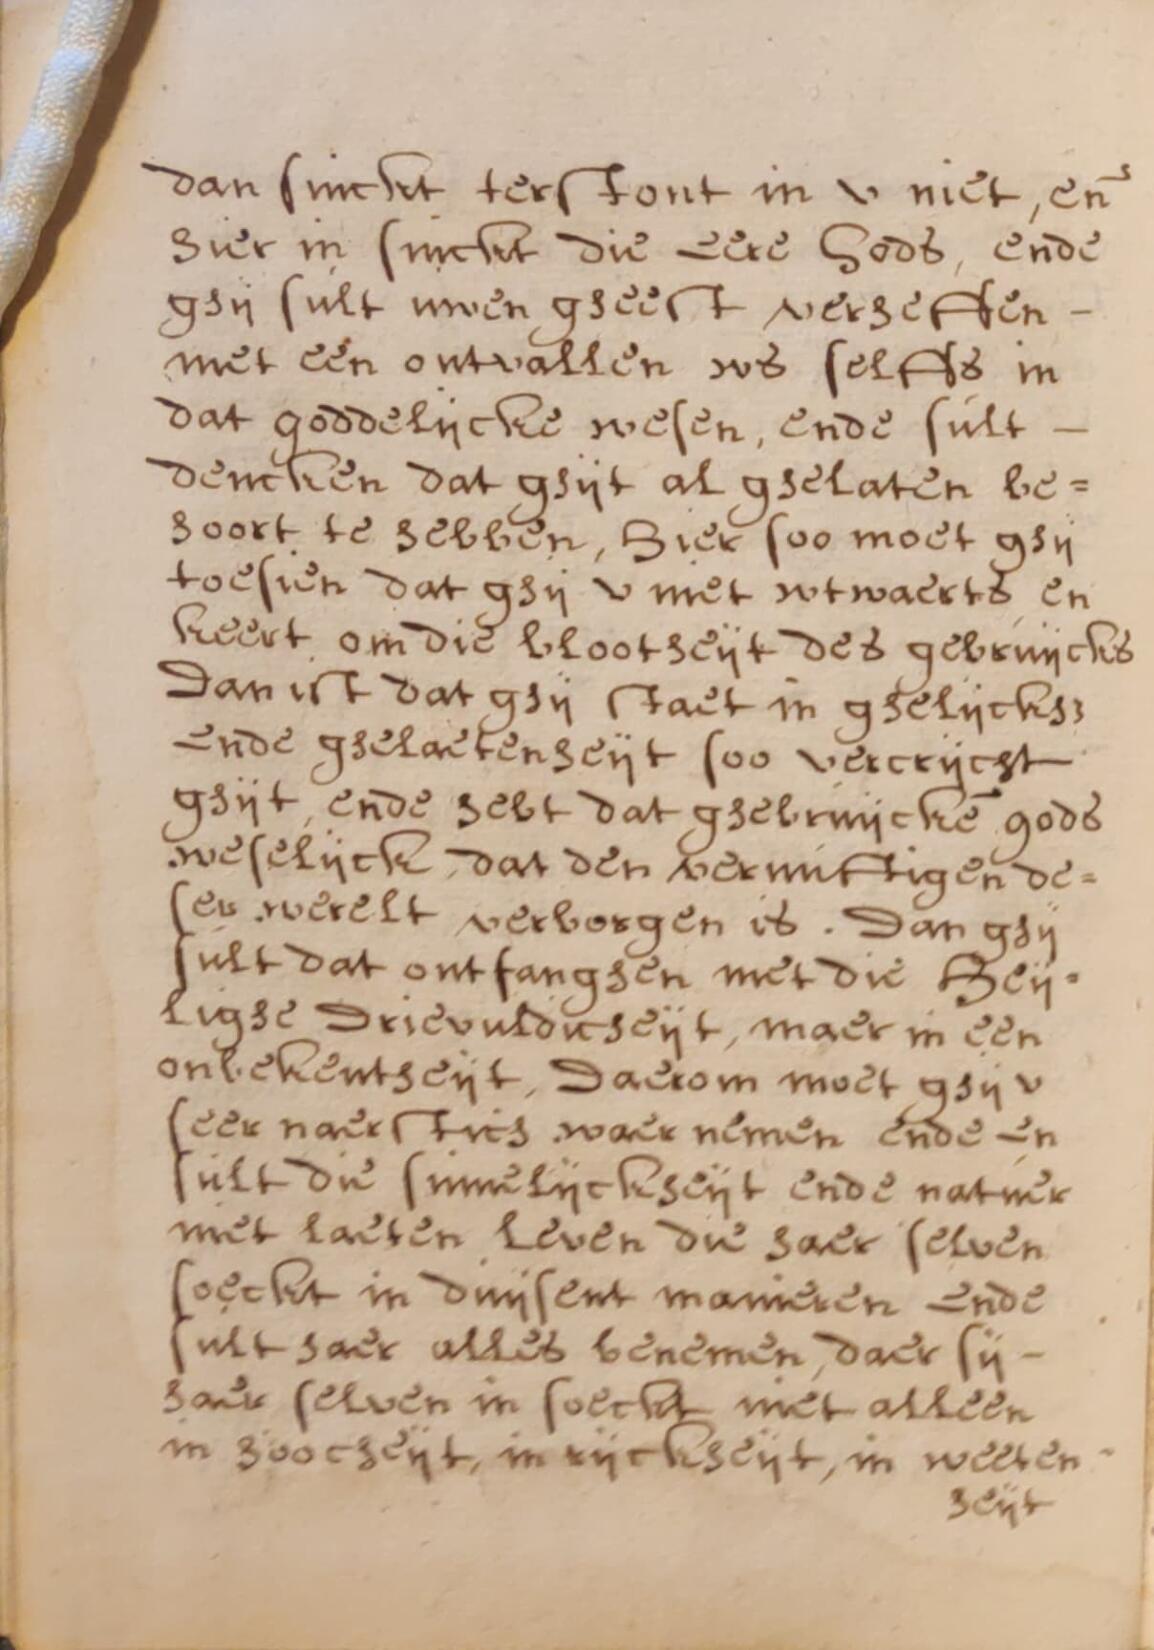 dan sinckt terstont in v niet, en̄
hier in sinckt die eere Gods, ende
ghij sult uwen gheest verheffen -
met een ontvallen ws selffs in
dat goddelijcke wesen, ende sult -
dencken dat ghijt al ghelaten be=
hoort te hebben, Hier soo moet ghij
toesien dat ghij v niet wtwaerts en
keert om die blootheijt des gebruijcks
Dan ist dat ghij staet in ghelijckh:
ende ghelaetenheijt soo vercrijcht
ghijt, ende hebt dat ghebruijckē gods
weselijck, dat den vernuftigen de=
ser werelt verborgen is. Dan ghij
sult dat ontfanghen met die Heij-
lighe Drievuldicheijt, maer in een
onbekentheijt, Daerom moet ghij v
seer naerstich waer nemen ende en
sult die sinnelijckheijt ende natuer
niet laeten leven die haer selven
soeckt in duijsent manieren ende
sult haer alles benemen, daer sij -
haer selven in soeckt niet alleen
in hoocheijt, in rijckheijt, in weeten-
heijt